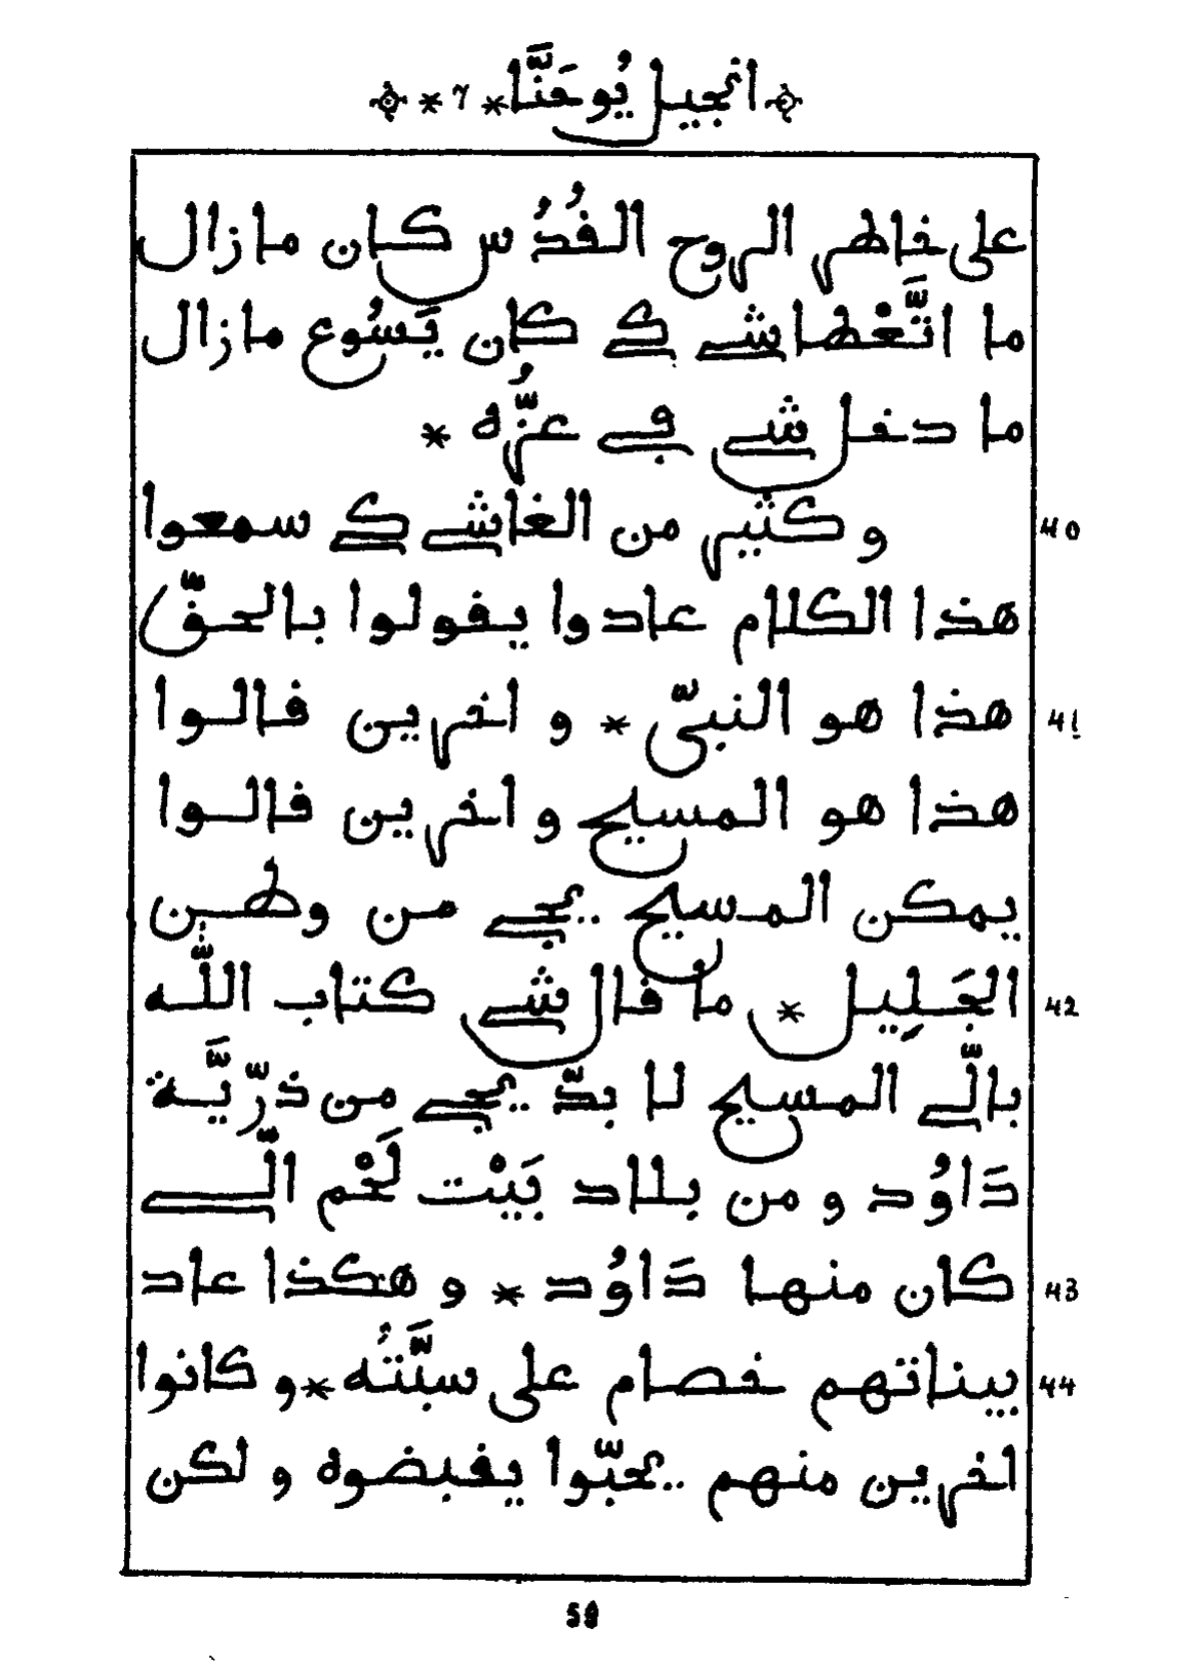 انجيل يُوحَنَّا * ٧ *
على خاطر الروح القُدُس كان مازال
ما اتَّعْطاشي كي كان يَسُوع مازال
ما دخل شي في عزُّه *
40 و كثير من الغاشي كي سمعوا
هذا الكلام عادوا يقولوا بالحقّ
41 هذا هو النبيّ * و اخرين قالوا
هذا هو المسيح و اخرين قالوا
يمكن المسيح يجي من وطن
42 الجَلِيل * ما قال شي كتاب اللّٰه
بالّي المسيح لا بدّ يجي من ذرّيَّة
دَاوُد و من بلاد بَيْت لَحْم الّي
43 كان منها دَاوُد * و هكذا عاد
44 بيناتهم خصام على سبَّتُه * و كانوا
اخرين منهم يحبّوا يقبضوه و لكن
59